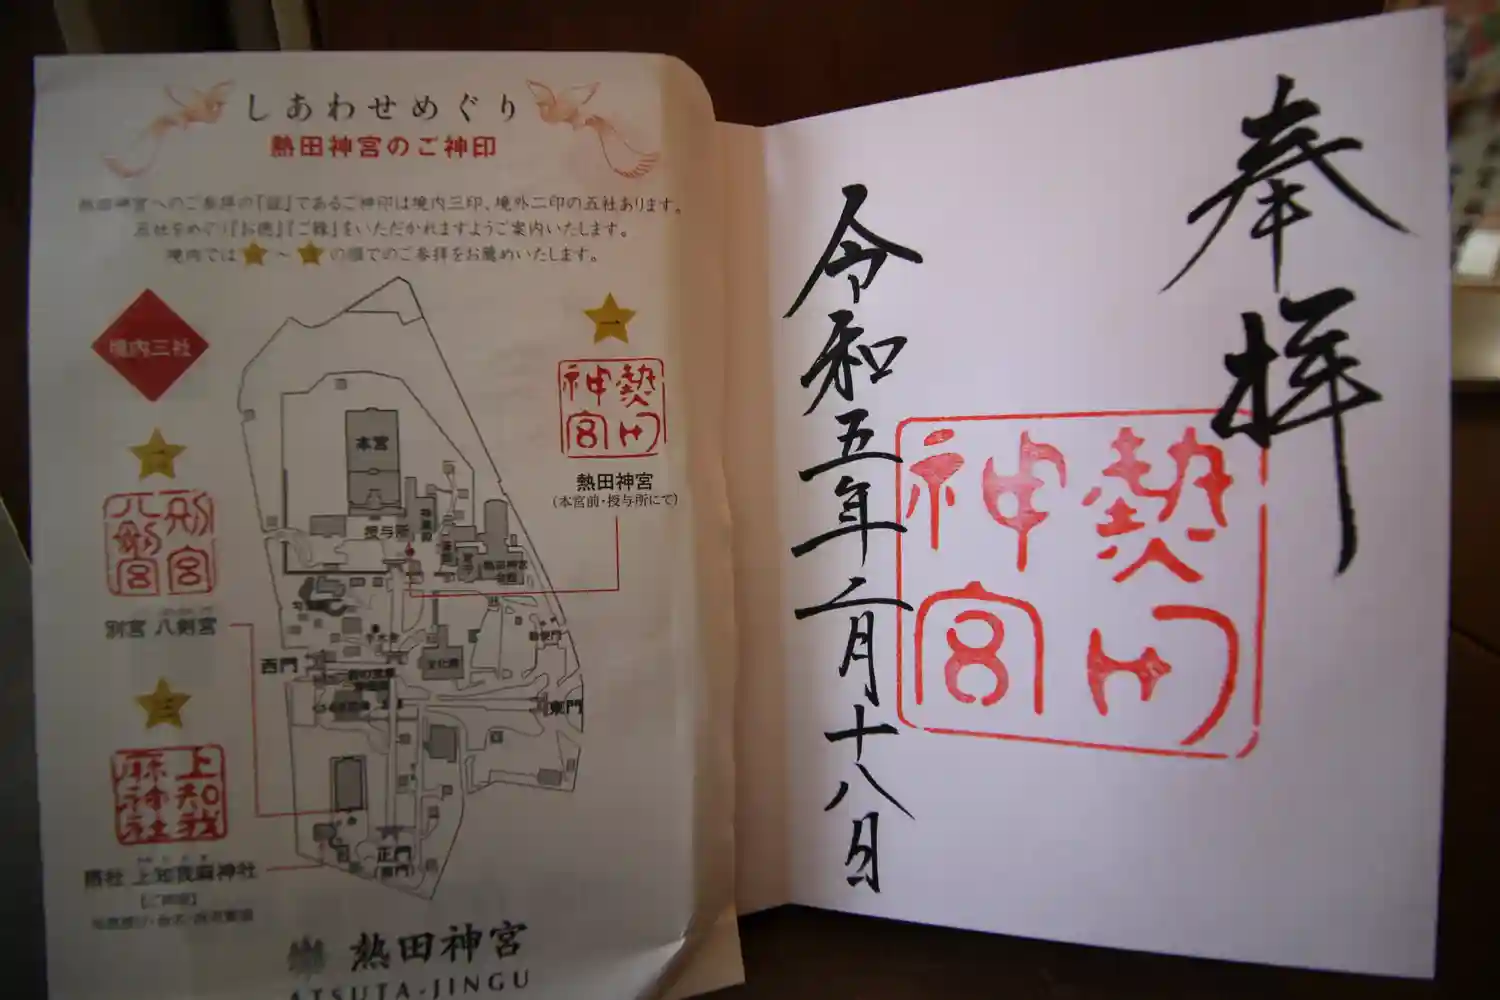 しあわせめぐり
熱田神宮のご神印
熱田神宮へのご参拝の『証』であるご神印は境内三印、境外二印の五社あります。
五社をめぐり『お徳』『ご縁』をいただかれますようご案内いたします。
境内では 一 ～ 三 の順でのご参拝をお薦めいたします。
境内三社
一
熱田神宮
熱田神宮
(本宮前・授与所にて)
二
別宮八剣宮
別宮 八剣宮
三
上知我麻神社
摂社 上知我麻神社
本宮
授与所
神楽殿
熱田神宮会館
西門
文化殿
東門
正門
(南門)
熱田神宮
ATSUTA-JINGU
奉拝
熱田神宮
令和五年二月十八日